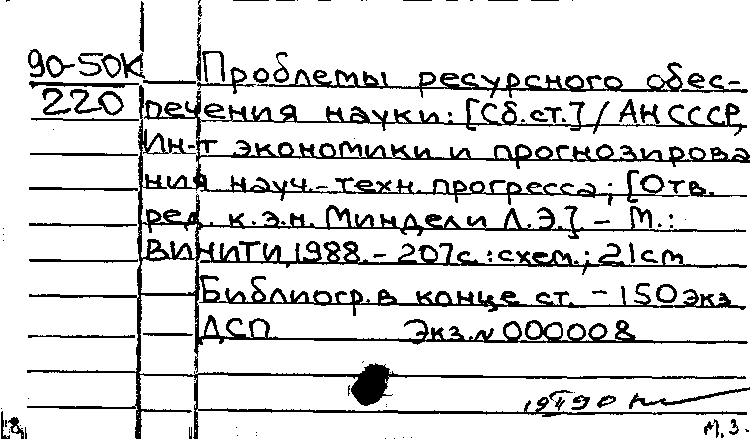 90-50К
220
Проблемы ресурсного обес-
печения науки: [Сб.ст.] / АН СССР,
Ин-т экономики и прогнозирова
ния науч.-техн. прогресса; [Отв.
ред. к.э.н. Миндели Л.Э.]. - М.:
ВИНИТИ, 1988. - 207с.: схем.; 21 cm
Библиогр. в конце ст. - 150 экз
ДСП Экз. № 000008
8.
М.З.